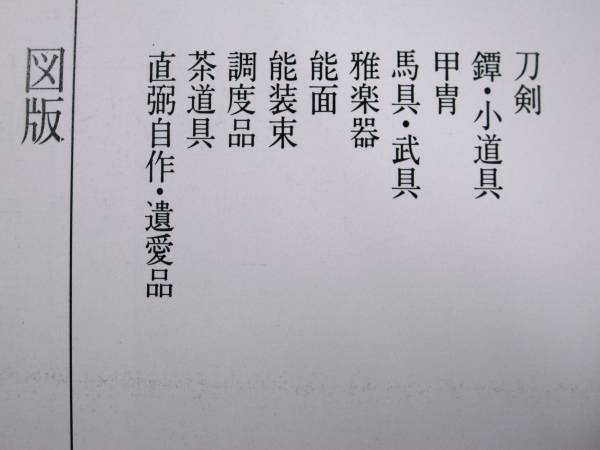 刀剣
鐔・小道具
甲冑
馬具・武具
雅楽器
能面
能装束
調度品
茶道具
直弼自作・遺愛品
図版